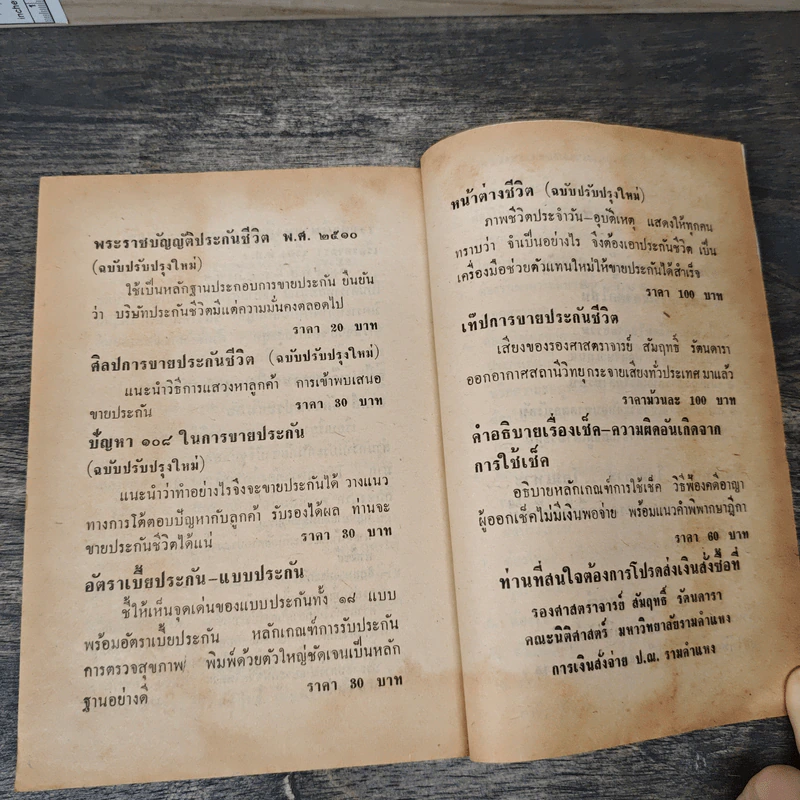 inche
1
พระราชบัญญัติประกันชีวิต พ.ศ. ๒๕๑๐
(ฉบับปรับปรุงใหม่)
ใช้เป็นหลักฐานประกอบการขายประกัน ยืนยัน
ว่า บริษัทประกันชีวิตมีแต่ความมั่นคงตลอดไป
ราคา 20 บาท
ศิลปการขายประกันชีวิต (ฉบับปรับปรุงใหม่)
แนะนำวิธีการแสวงหาลูกค้า การเข้าพบเสนอ
ขายประกัน ราคา 30 บาท
ปัญหา ๑๐๘ ในการขายประกัน
(ฉบับปรับปรุงใหม่)
แนะนำว่าทำอย่างไรจึงจะขายประกันได้ วางแนว
ทางการโต้ตอบปัญหากับลูกค้า รับรองได้ผล ท่านจะ
ขายประกันชีวิตได้แน่ ราคา 30 บาท
อัตราเบี้ยประกัน-แบบประกัน
ชี้ให้เห็นจุดเด่นของแบบประกันทั้ง ๑๘ แบบ
พร้อมอัตราเบี้ยประกัน หลักเกณฑ์การรับประกัน
การตรวจสุขภาพ พิมพ์ด้วยตัวใหญ่ชัดเจนเป็นหลัก
ฐานอย่างดี ราคา 30 บาท
หน้าต่างชีวิต (ฉบับปรับปรุงใหม่)
ภาพชีวิตประจำวัน-อุบัติเหตุ แสดงให้ทุกคน
ทราบว่า จำเป็นอย่างไร จึงต้องเอาประกันชีวิต เป็น
เครื่องมือช่วยตัวแทนใหม่ให้ขายประกันได้สำเร็จ
ราคา 100 บาท
เท๊ปการขายประกันชีวิต
เสียงของรองศาสตราจารย์ สัมฤทธิ์ รัตนดารา
ออกอากาศสถานีวิทยุกระจายเสียงทั่วประเทศมาแล้ว
ราคาม้วนละ 100 บาท
คำอธิบายเรื่องเช็ค-ความผิดอันเกิดจาก
การใช้เช็ค
อธิบายหลักเกณฑ์การใช้เช็ค วิธีฟ้องคดีอาญา
ผู้ออกเช็คไม่มีเงินพอจ่าย พร้อมแนวคำพิพากษาฎีกา
ราคา 60 บาท
ท่านที่สนใจต้องการโปรดส่งเงินสั่งซื้อที่
รองศาสตราจารย์ สัมฤทธิ์ รัตนดารา
คณะนิติศาสตร์ มหาวิทยาลัยรามคำแหง
การเงินสั่งจ่าย ป.ณ. รามคำแหง